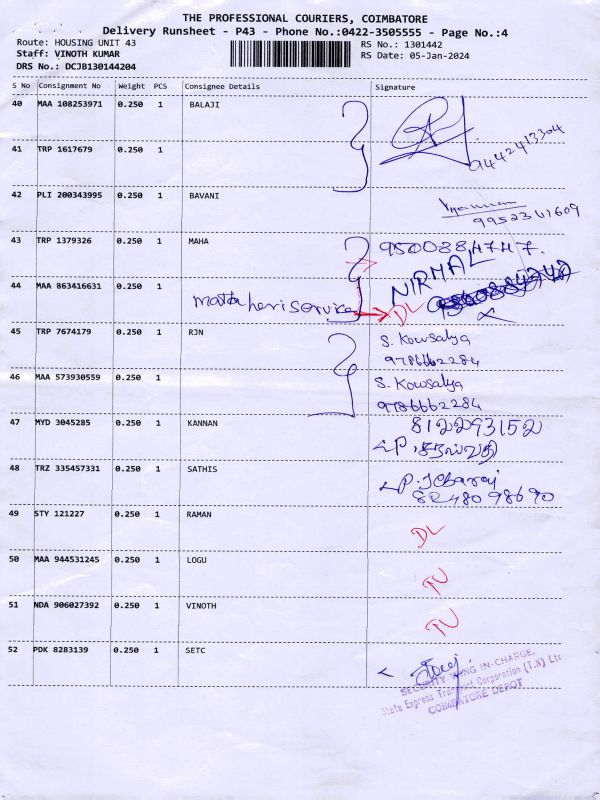 THE PROFESSIONAL COURIERS, COIMBATORE
Delivery Runsheet - P43 - Phone No.:0422-3505555 - Page No.:4
Route: HOUSING UNIT 43
RS No.: 1301442
Staff: VINOTH KUMAR
RS Date: 05-Jan-2024
DRS No.: DCJB130144204
S No Consignment No Weight PCS Consignee Details Signature
40 MAA 108253971 0.250 1 BALAJI
9442413304
41 TRP 1617679 0.250 1
42 PLI 200343995 0.250 1 BAVANI
9952341609
43 TRP 1379326 0.250 1 MAHA 9500884747.
44 MAA 863416631 0.250 1 NIRMAL
DL
45 TRP 7674179 0.250 1 RJN S. Kowsalya
9786662284
46 MAA 573930559 0.250 1 S. Kowsalya
9786662284
47 MYD 3045285 0.250 1 KANNAN 8122293152
48 TRZ 335457331 0.250 1 SATHIS
8248098690
49 STY 121227 0.250 1 RAMAN DL
50 MAA 944531245 0.250 1 LOGU TU
51 NDA 906027392 0.250 1 VINOTH TU
52 PDK 8283139 0.250 1 SETC
SECURITY WING IN-CHARGE,
State Express Transport Corporation (T.N) Ltd
COIMBATORE DEPOT